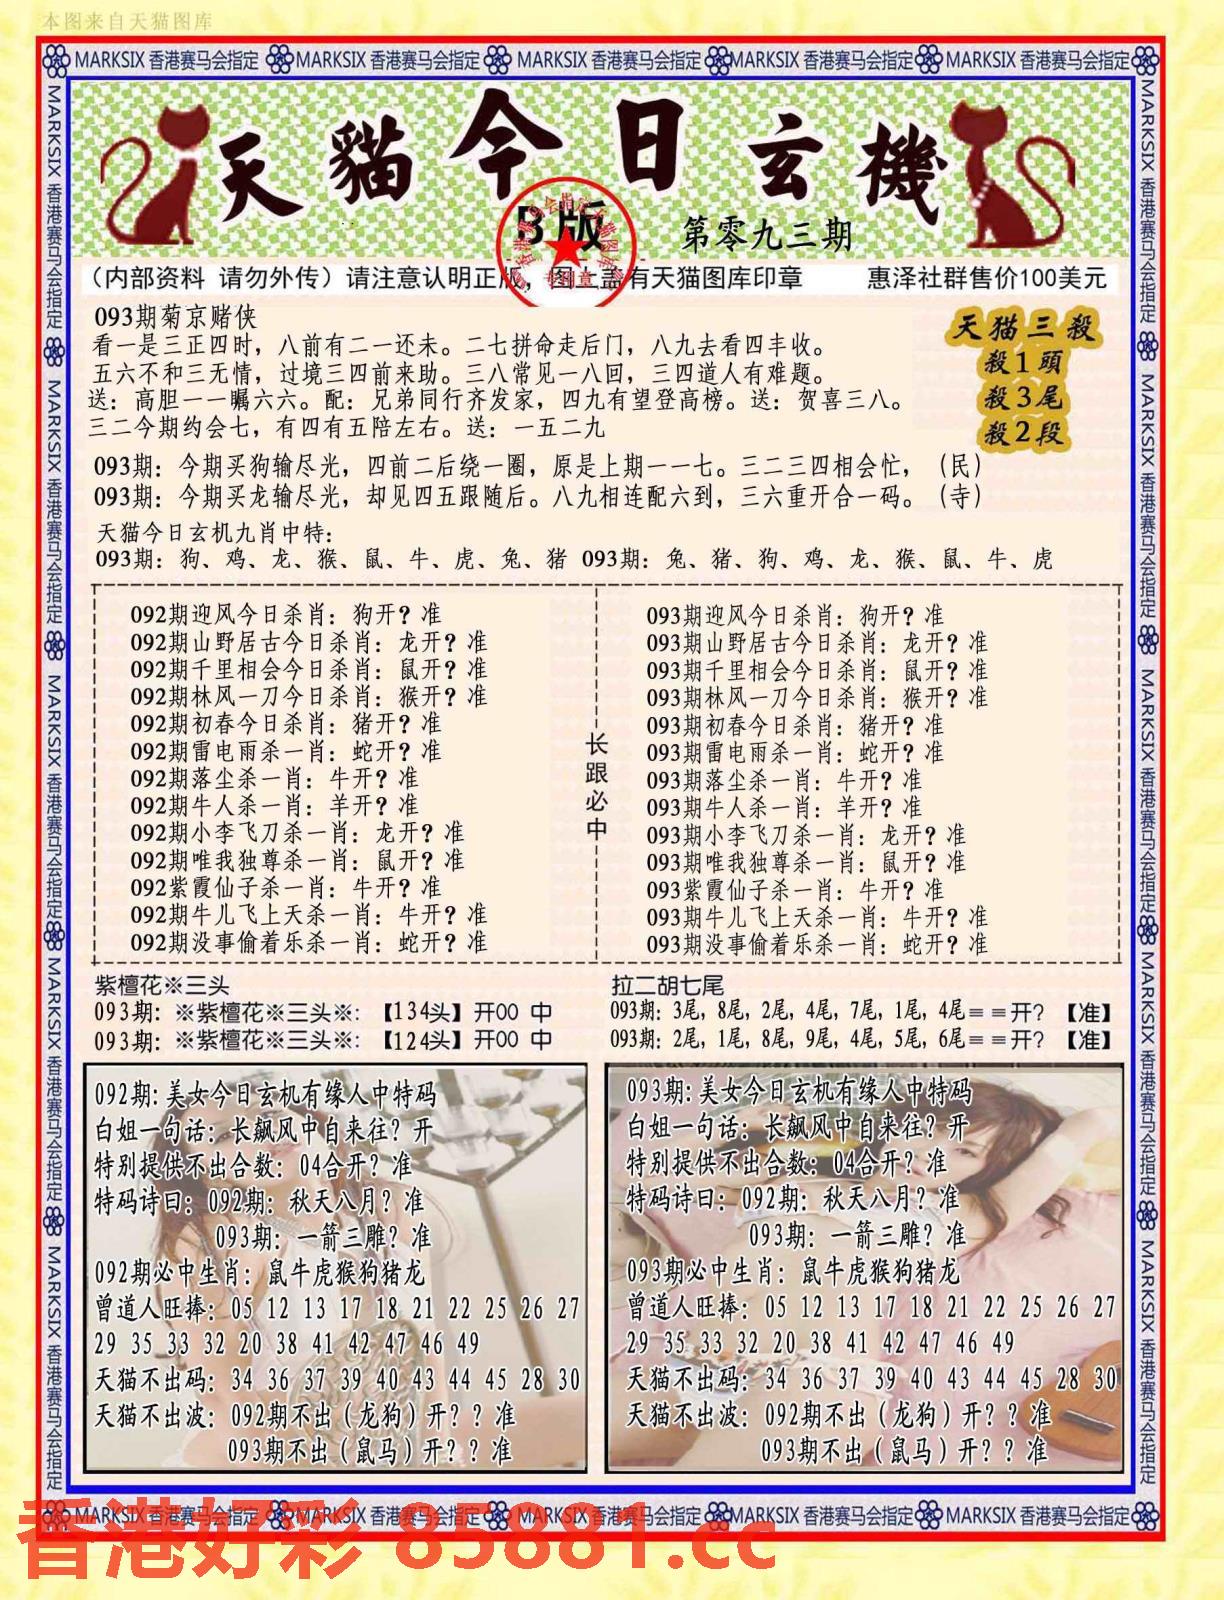 本图来自天猫图库
MARKSIX 香港赛马会指定 MARKSIX 香港赛马会指定 MARKSIX 香港赛马会指定 MARKSIX 香港赛马会指定 MARKSIX 香港赛马会指定
MARKSIX 香港赛马会指定 MARKSIX 香港赛马会指定 MARKSIX 香港赛马会指定 MARKSIX 香港赛马会指定 MARKSIX 香港赛马会指定
MARKSIX 香港赛马会指定 MARKSIX 香港赛马会指定 MARKSIX 香港赛马会指定 MARKSIX 香港赛马会指定 MARKSIX 香港赛马会指定
天貓今日玄機
B版
第零九三期
专用章
（内部资料 请勿外传）请注意认明正版，图上盖有天猫图库印章 惠泽社群售价100美元
093期菊京赌侠
看一是三正四时，八前有二一还未。二七拼命走后门，八九去看四丰收。
五六不和三无情，过境三四前来助。三八常见一八回，三四道人有难题。
送：高胆一一瞩六六。配：兄弟同行齐发家，四九有望登高榜。送：贺喜三八。
三二今期约会七，有四有五陪左右。送：一五二九
天猫三殺
殺1頭
殺3尾
殺2段
093期：今期买狗输尽光，四前二后绕一圈，原是上期一一七。三二三四相会忙，（民）
093期：今期买龙输尽光，却见四五跟随后。八九相连配六到，三六重开合一码。（寺）
天猫今日玄机九肖中特：
093期：狗、鸡、龙、猴、鼠、牛、虎、兔、猪 093期：兔、猪、狗、鸡、龙、猴、鼠、牛、虎
092期迎风今日杀肖：狗开？准
092期山野居古今日杀肖：龙开？准
092期千里相会今日杀肖：鼠开？准
092期林风一刀今日杀肖：猴开？准
092期初春今日杀肖：猪开？准
092期雷电雨杀一肖：蛇开？准
092期落尘杀一肖：牛开？准
092期牛人杀一肖：羊开？准
092期小李飞刀杀一肖：龙开？准
092期唯我独尊杀一肖：鼠开？准
092紫霞仙子杀一肖：牛开？准
092期牛儿飞上天杀一肖：牛开？准
092期没事偷着乐杀一肖：蛇开？准
长跟必中
093期迎风今日杀肖：狗开？准
093期山野居古今日杀肖：龙开？准
093期千里相会今日杀肖：鼠开？准
093期林风一刀今日杀肖：猴开？准
093期初春今日杀肖：猪开？准
093期雷电雨杀一肖：蛇开？准
093期落尘杀一肖：牛开？准
093期牛人杀一肖：羊开？准
093期小李飞刀杀一肖：龙开？准
093期唯我独尊杀一肖：鼠开？准
093紫霞仙子杀一肖：牛开？准
093期牛儿飞上天杀一肖：牛开？准
093期没事偷着乐杀一肖：蛇开？准
紫檀花※三头
093期：※紫檀花※三头※：【134头】开00 中
093期：※紫檀花※三头※：【124头】开00 中
拉二胡七尾
093期：3尾，8尾，2尾，4尾，7尾，1尾，4尾==开？【准】
093期：2尾，1尾，8尾，9尾，4尾，5尾，6尾==开？【准】
092期：美女今日玄机有缘人中特码
白姐一句话：长飙风中自来往？开
特别提供不出合数：04合开？准
特码诗曰：092期：秋天八月？准
093期：一箭三雕？准
092期必中生肖：鼠牛虎猴狗猪龙
曾道人旺捧：05 12 13 17 18 21 22 25 26 27
29 35 33 32 20 38 41 42 47 46 49
天猫不出码：34 36 37 39 40 43 44 45 28 30
天猫不出波：092期不出（龙狗）开？？准
093期不出（鼠马）开？？准
093期：美女今日玄机有缘人中特码
白姐一句话：长飙风中自来往？开
特别提供不出合数：04合开？准
特码诗曰：092期：秋天八月？准
093期：一箭三雕？准
093期必中生肖：鼠牛虎猴狗猪龙
曾道人旺捧：05 12 13 17 18 21 22 25 26 27
29 35 33 32 20 38 41 42 47 46 49
天猫不出码：34 36 37 39 40 43 44 45 28 30
天猫不出波：092期不出（龙狗）开？？准
093期不出（鼠马）开？？准
MARKSIX 香港赛马会指定 MARKSIX 香港赛马会指定 MARKSIX 香港赛马会指定 MARKSIX 香港赛马会指定 MARKSIX 香港赛马会指定
香港好彩 85881.cc